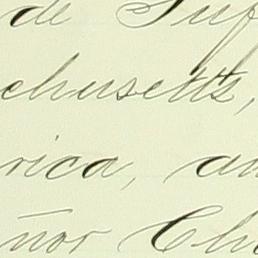 de Suf
chusetts,
rica, an
ñor Cha